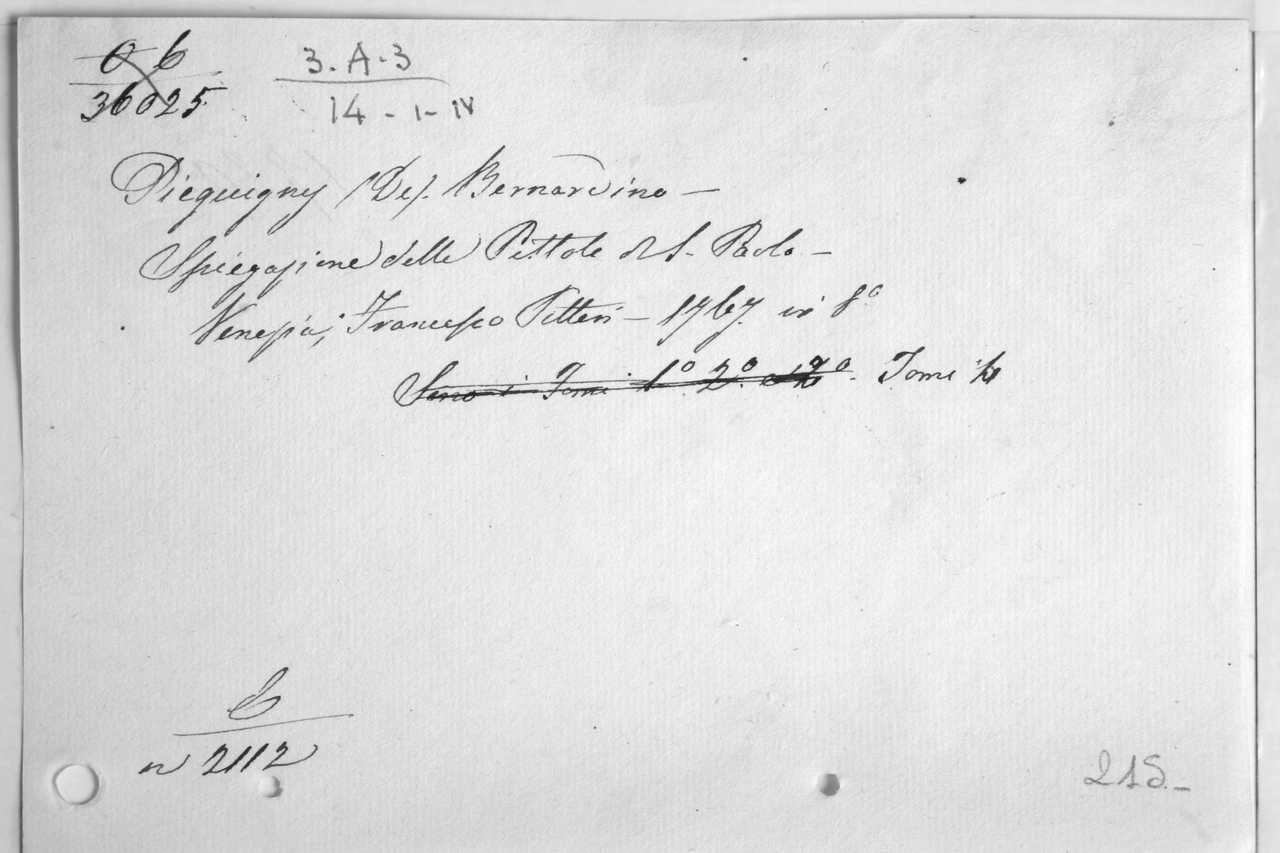 O b
36025
3. A. 3
14 - 1 - IV
Picquigny (De). Bernardino —
Spiegazione delle Pistole di S. Paolo —
Venezia; Francesco Pitteri — 1767. in 8º
Sono i Tomi 1º 2º e Tomi 4
C
n 2112
215.-